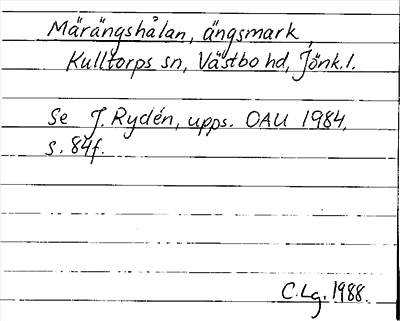 Märängshålan, ängsmark,
Kulltorps sn, Västbo hd, Jönk.l.
Se J. Rydén, upps. OAU 1984,
s. 84f.
C.Lg. 1988.